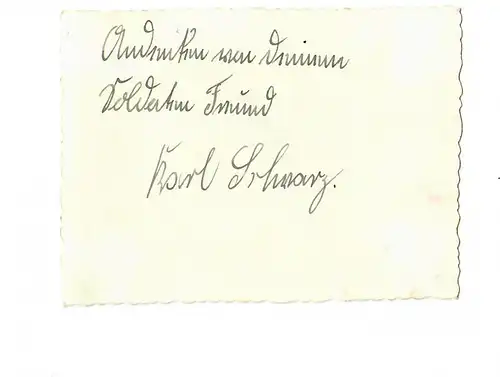 Andenken von Deinem
Soldaten Freund
Karl Schwarz.